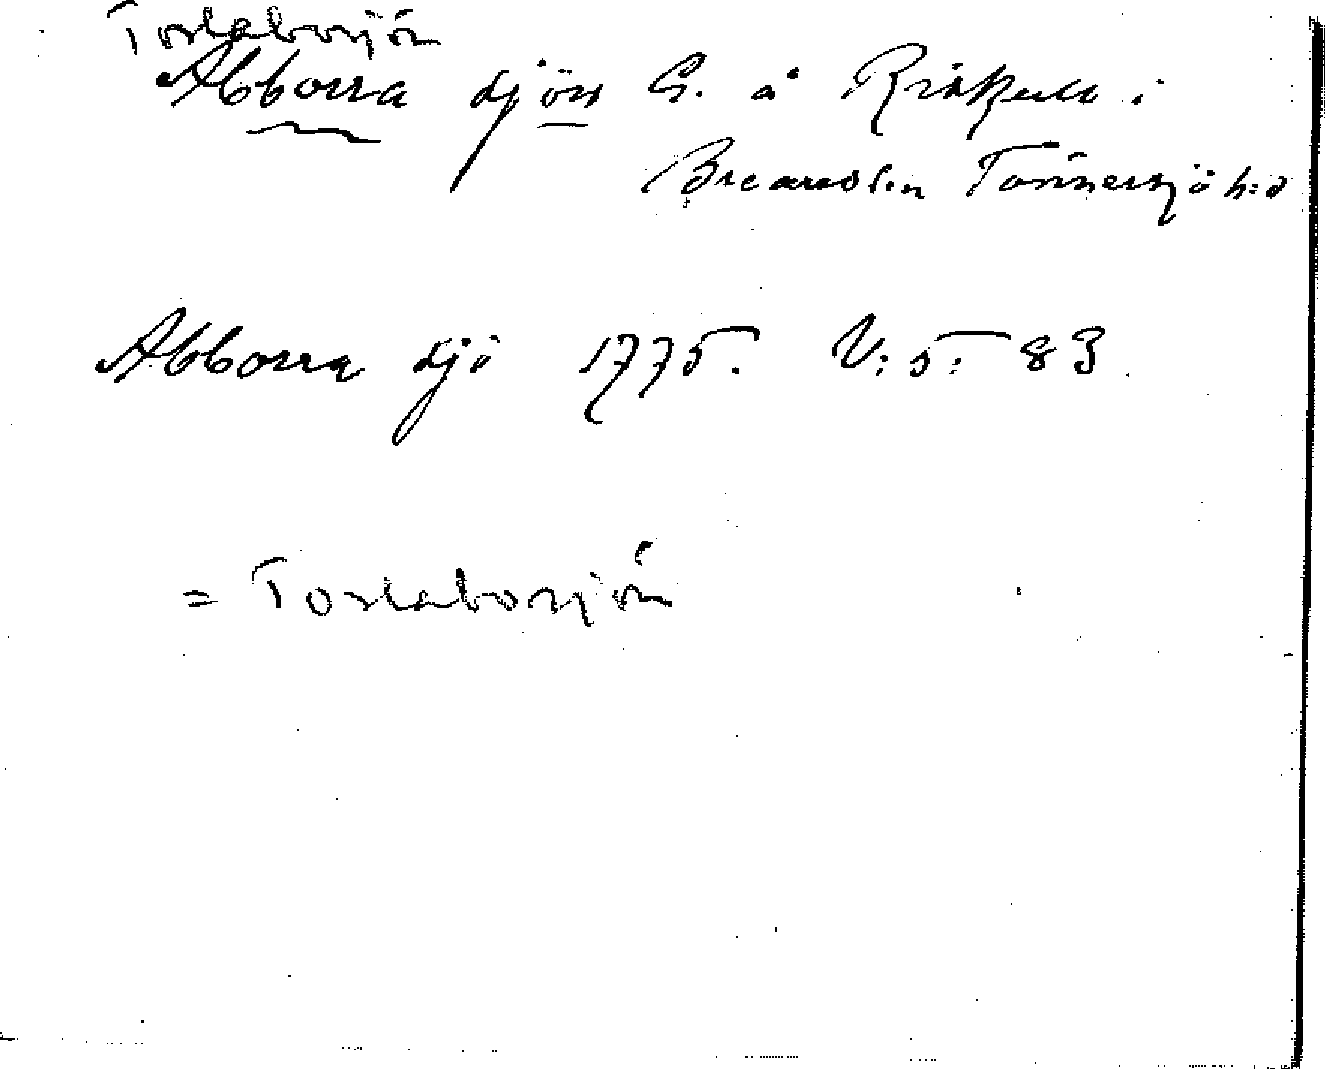 Torslabosjön
Abborra sjön S. å Råkull i
Breared s:n Tönnersjö h:d
Abborra sjö 1775. V: 5: 83
= Torslabosjön